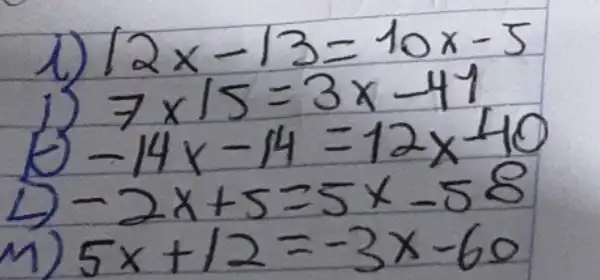 i) 12x-13=10x-5
j) 7x15=3x-41
k) -14x-14=12x-40
L) -2x+5=5x-58
M) 5x+12=-3x-60